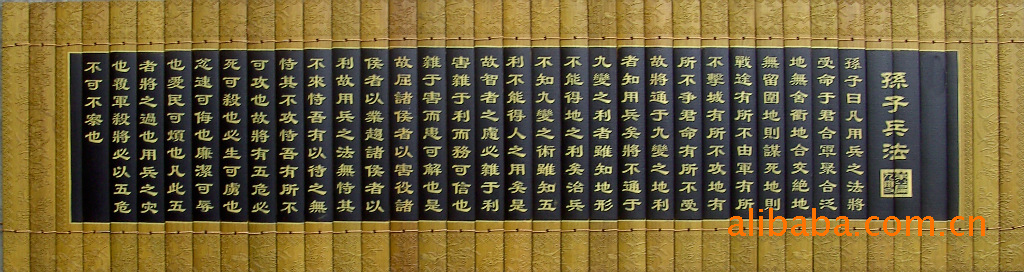 孫子兵法
孫子曰凡用兵之法將
受命于君合軍聚合泛
地無舍衢地合交絕地
無留圍地則謀死地則
戰途有所不由軍有所
不擊城有所不攻地有
所不爭君命有所不受
故將通于九變之地利
者知用兵矣將不通于
九變之利者雖知地形
不能得地之利矣治兵
不知九變之術雖知五
利不能得人之用矣是
故智者之慮必雜于利
害雜于利而務可信也
雜于害而患可解也是
故屈諸侯者以害役諸
侯者以業趨諸侯者以
利故用兵之法無恃其
不來恃吾有以待之無
恃其不攻恃吾有所不
可攻也故將有五危必
死可殺也必生可虜也
忿速可侮也廉潔可辱
也愛民可煩也凡此五
者將之過也用兵之災
也覆軍殺將必以五危
不可不察也
alibaba.com.cn